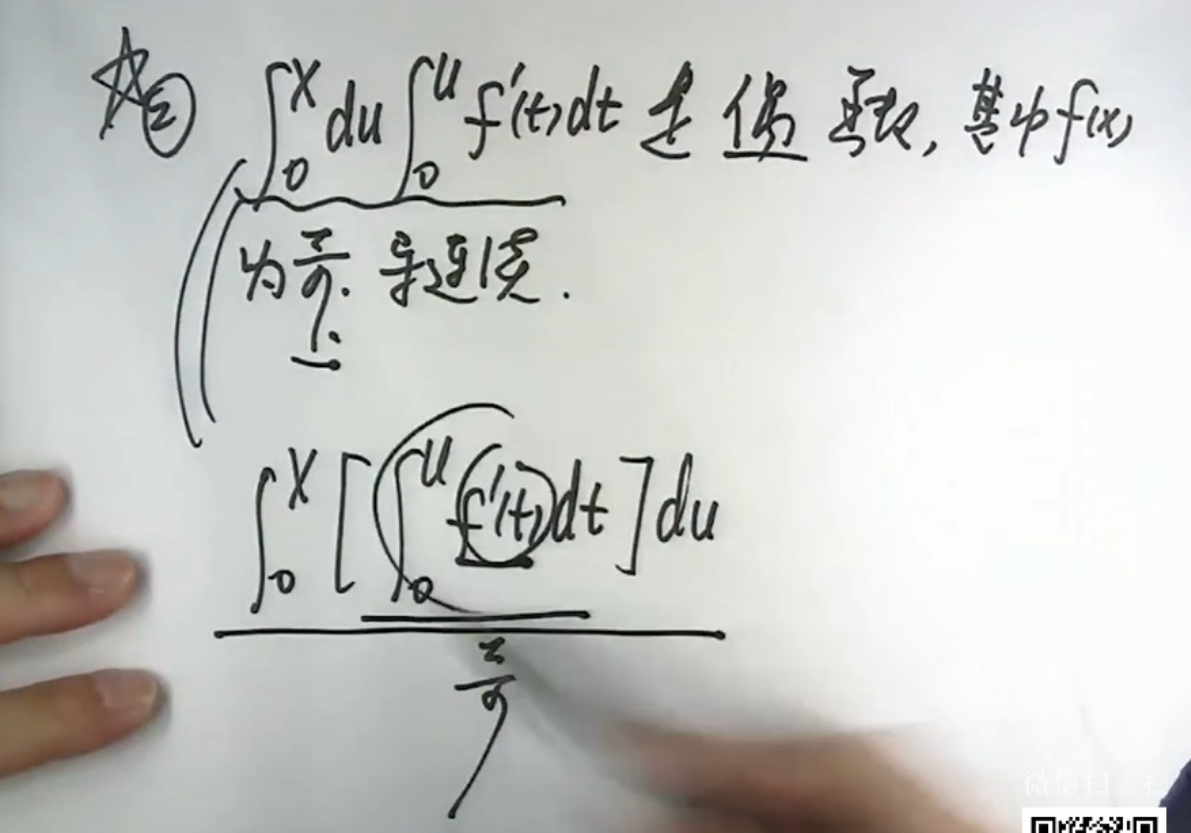 ☆② ∫₀ˣ du ∫₀ᵘ f'(t)dt 是偶函数, 其中f(x)
为奇. 导连续.
奇
∫₀ˣ [∫₀ᵘ f'(t)dt] du
奇
微信扫一扫